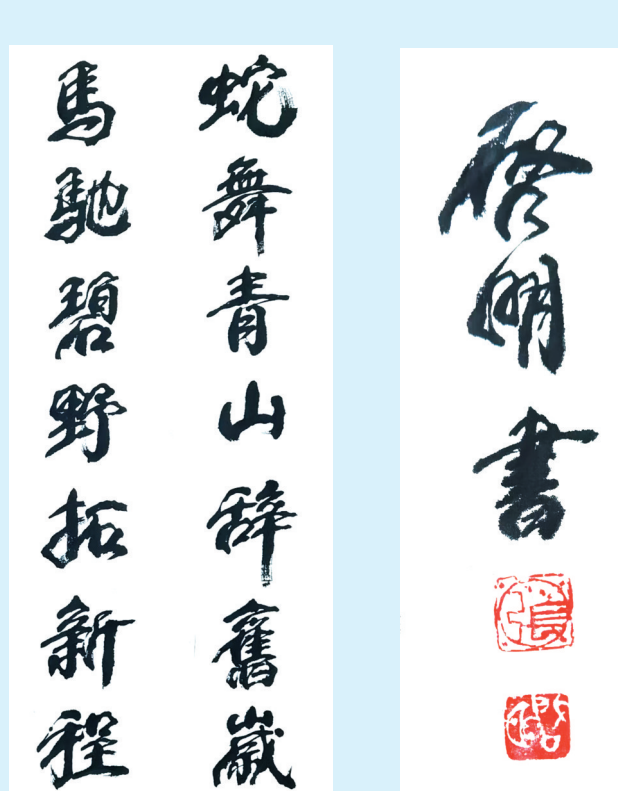 蛇舞青山辞舊歲
馬馳碧野拓新程
啓明書
張